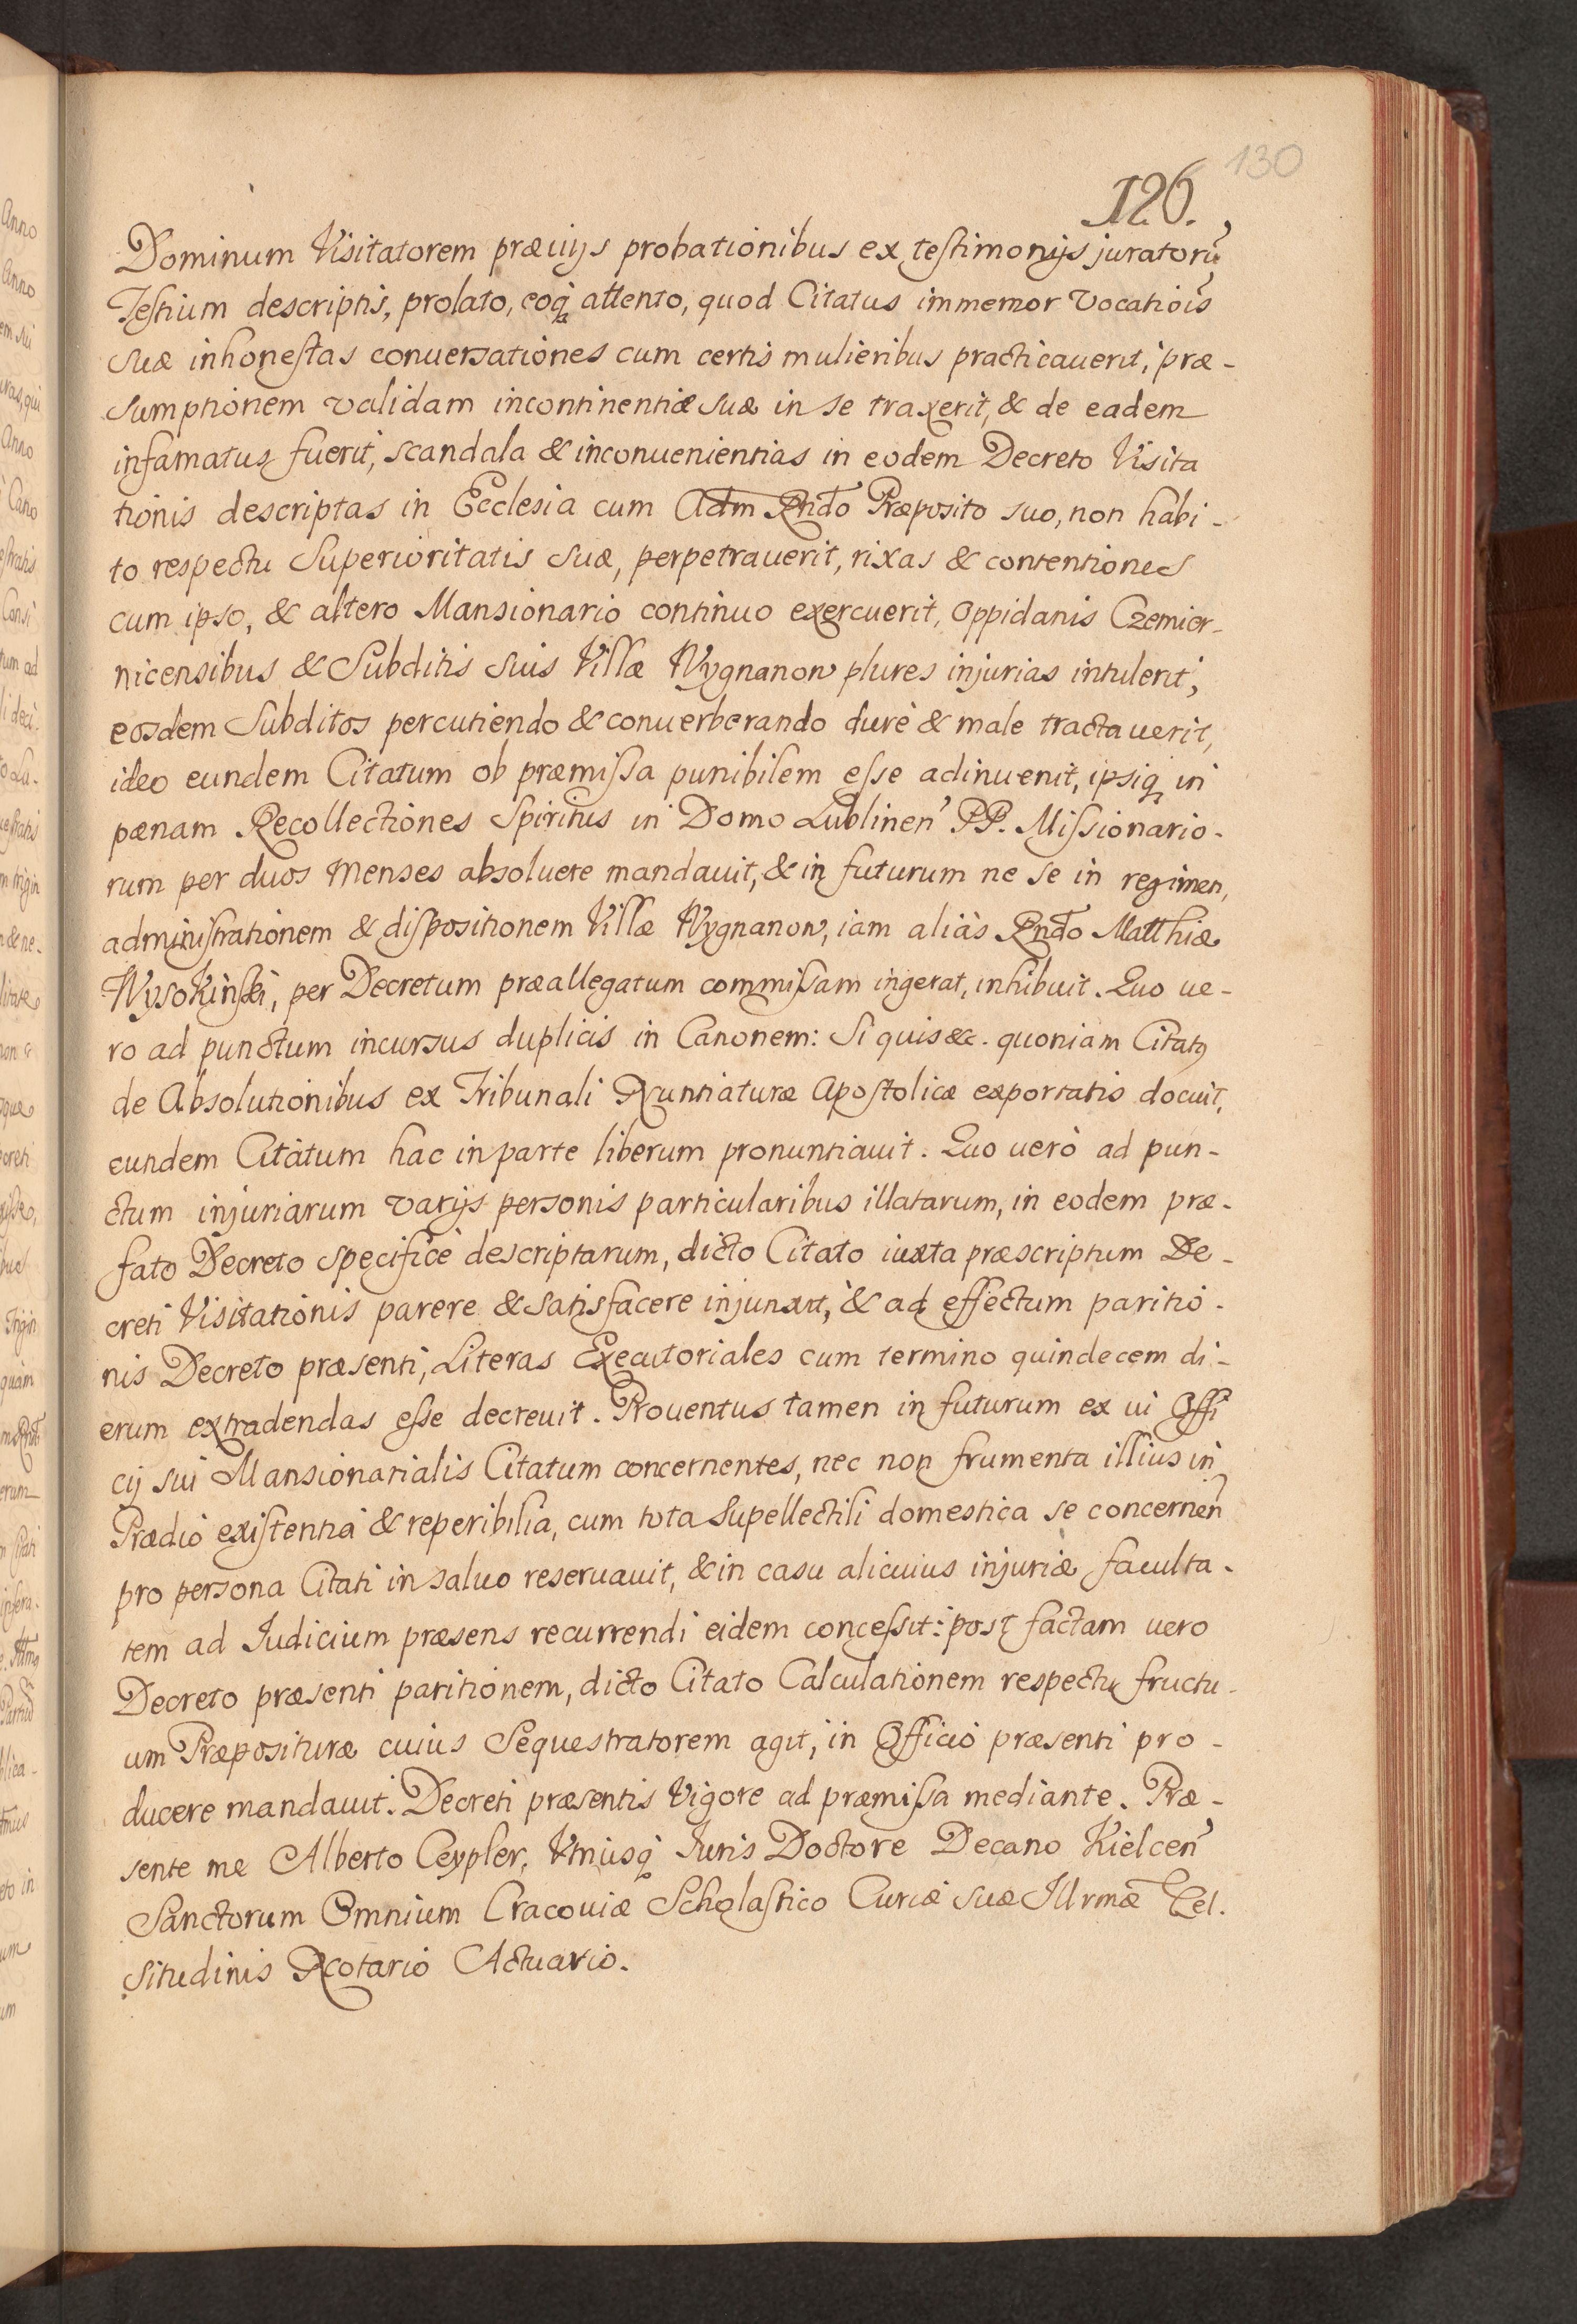 130
126.
Dominum Visitatorem præuijs probationibus ex testimonijs juratorũ
Testium descriptis, prolato, eoq̃ attento, quod Citatus immemor vocatiõis
suæ inhonestas conuersationes cum certis mulieribus practicauerit, præ-
sumptionem validam incontinentiæ suæ in se traxerit, & de eadem
infamatus fuerit, scandala & inconuenientias in eodem Decreto Visita
tionis descriptas in Ecclesia cum Adm Rndo Præposito suo, non habi-
to respectu Superioritatis suæ, perpetrauerit, rixas & contentiones
cum ipso, & altero Mansionario continuo exercuerit, oppidanis Czemier-
nicensibus & Subditis suis Villæ Wygnanow plures injurias intulerit,
eosdem Subditos percutiendo & conuerberando durè & male tractauerit,
ideo eundem Citatum ob præmissa punibilem esse adinuenit, ipsiq̃ in
pænam Recollectiones Spiritus in Domo Lublinen̄ PP. Missionario-
rum per duos menses absoluere mandauit, & in futurum ne se in regimen,
administrationem & dispositionem Villæ Wygnanow, iam aliàs Rndo Matthiæ
Wysokinski, per Decretum præallegatum commissam ingerat, inhibuit. Quo ue-
ro ad punctum incursus duplicis in Canonem: Si quis &c. quoniam Citatus
de Absolutionibus ex Tribunali Nuntiaturæ Apostolicæ exportatis docuit,
eundem Citatum hac in parte liberum pronuntiauit. Quo uerò ad pun-
ctum injuriarum varijs personis particularibus illatarum, in eodem præ-
fato Decreto specificè descriptarum, dicto Citato iuxta præscriptum De-
creti Visitationis parere & satisfacere injunxit, & ad effectum paritio-
nis Decreto præsenti, Literas Executoriales cum termino quindecem di-
erum extradendas esse decreuit. Prouentus tamen in futurum ex ui Offi
cij sui Mansionarialis Citatum concernentes, nec non frumenta illius in
Prædio existentia & reperibilia, cum tota supellectili domestica se concernen̄
pro persona Citati in saluo reseruauit, & in casu alicuius injuriæ faculta-
tem ad Iudicium præsens recurrendi eidem concessit: post factam uero
Decreto præsenti paritionem, dicto Citato Calculationem respectu fructu-
um Præposituræ cuius Sequestratorem agit, in Officio præsenti pro-
ducere mandauit. Decreti præsentis Vigore ad præmissa mediante. Præ-
sente me Alberto Ceypler, Vtriusq̃ Iuris Doctore Decano Kielcen̄
Sanctorum Omnium Cracouiæ Scholastico Curiæ suæ Illrmæ Cel.
situdinis Notario Actuario.